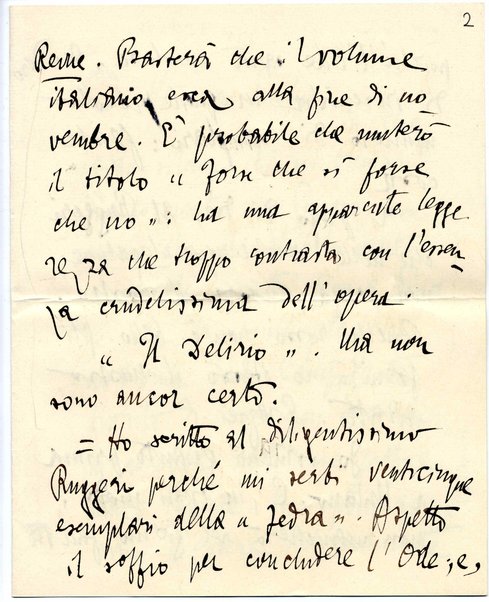 2
Revue. Basterà che il volume
italiano esca alla fine di no
vembre. È probabile che muterò
il titolo « Forse che sì forse
che no »: ha una apparente legge
rezza che troppo contrasta con l'essen
za crudelissima dell'opera.
« Il Delirio ». Ma non
sono ancor certo.
= Ho scritto al diligentissimo
Ruggeri perché mi serbi venticinque
esemplari della « Fedra ». Aspetto
il soffio per concludere l'Ode; e,